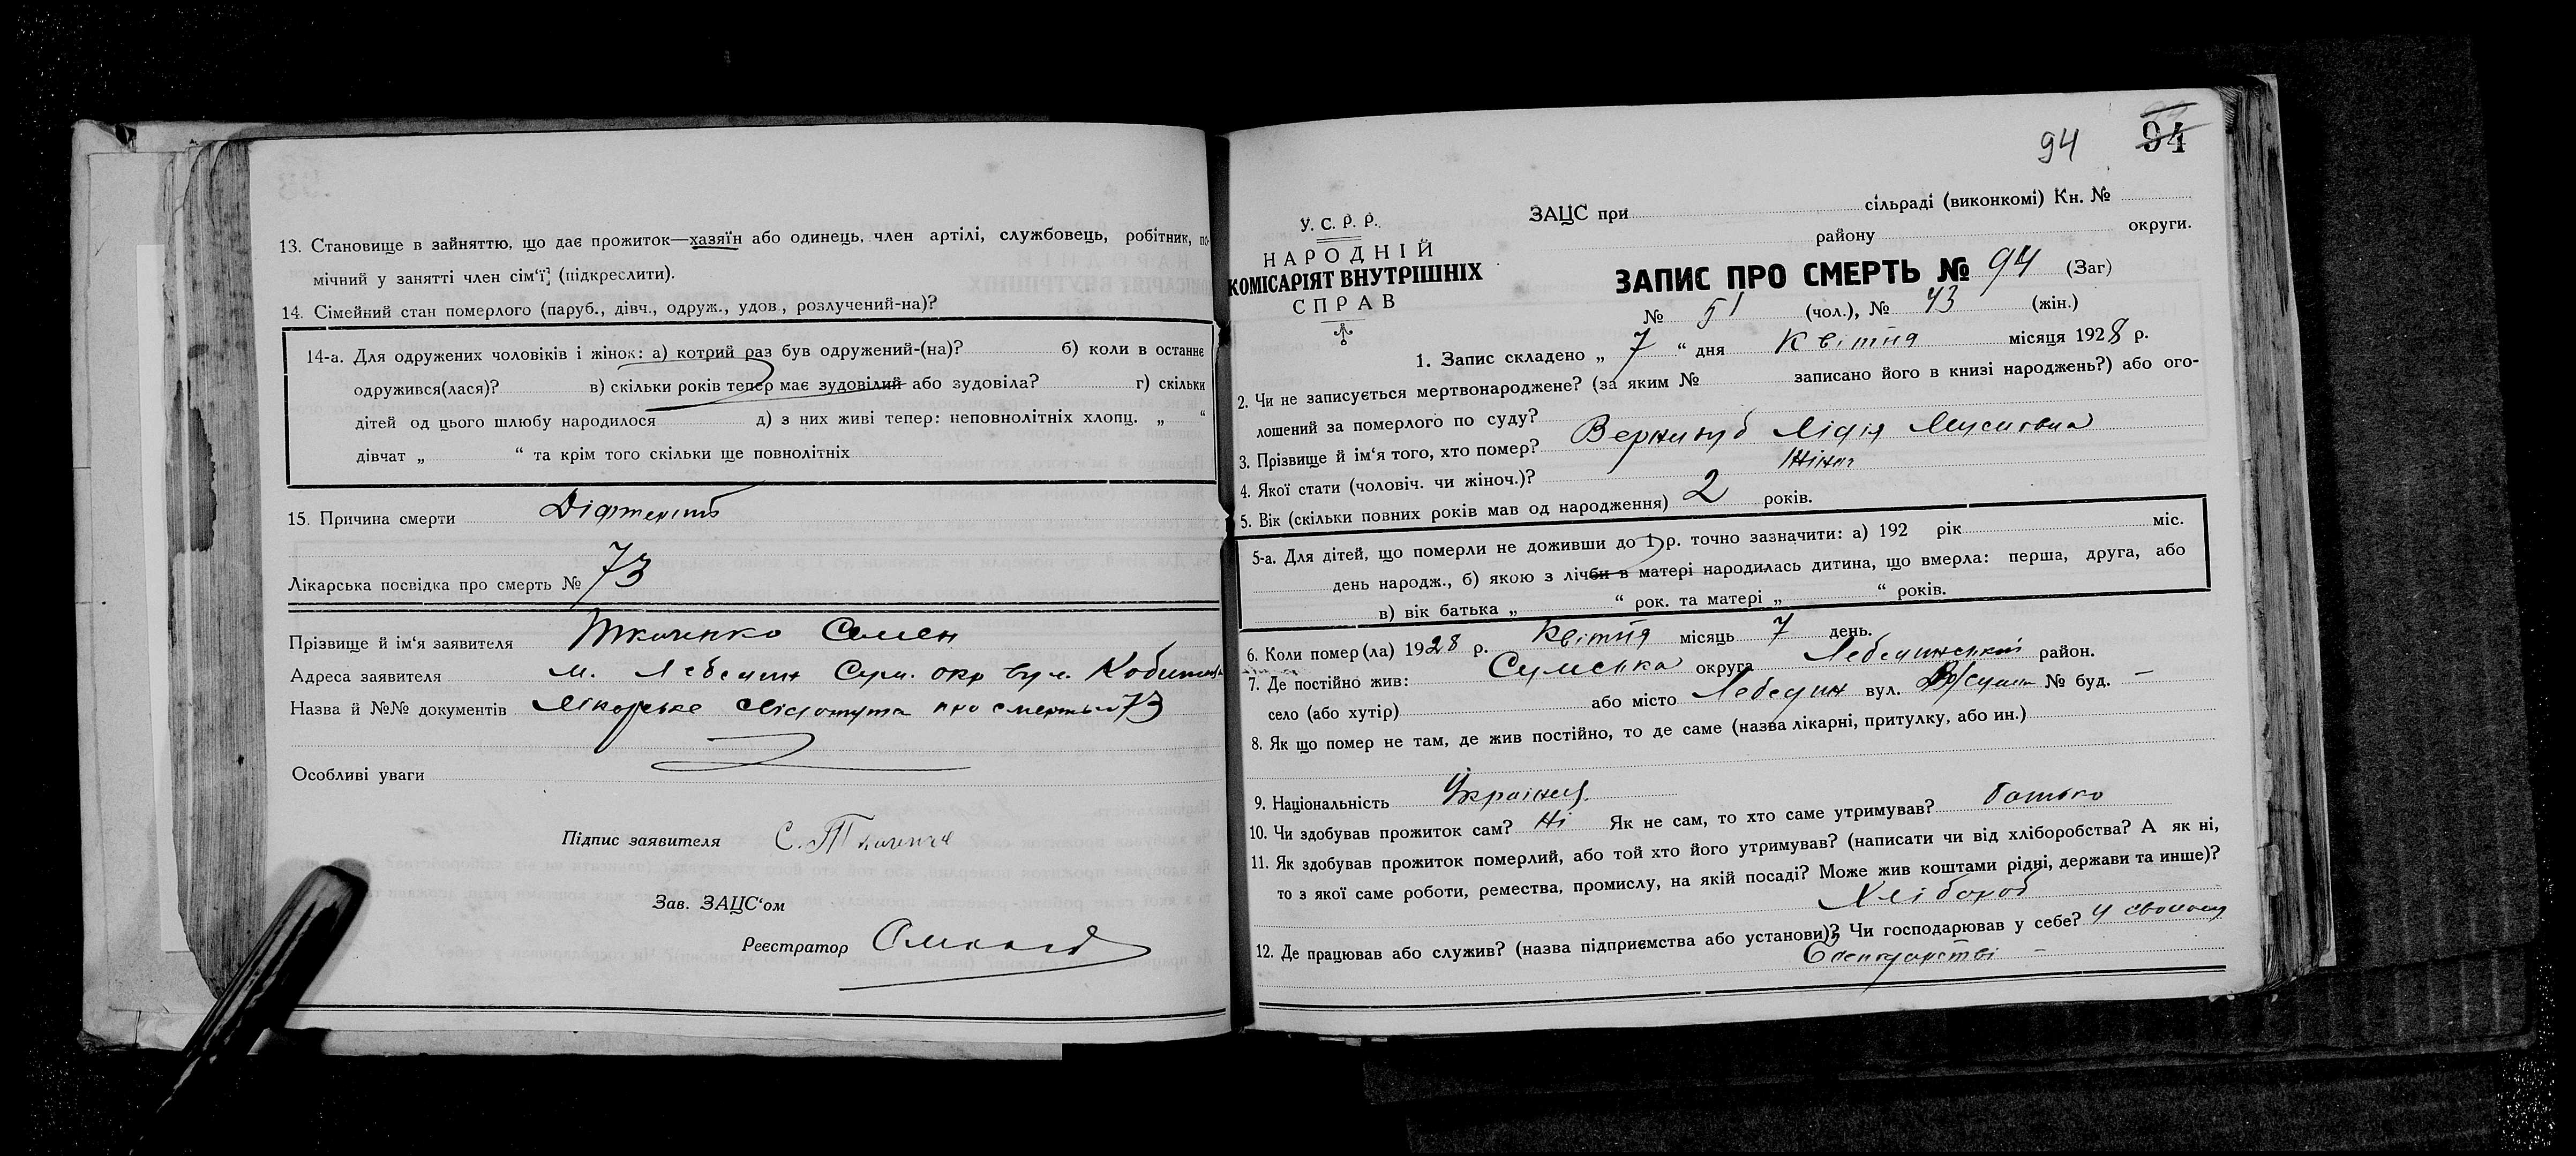 13. Становище в зайняттю, що дає прожиток—хазяїн або одинець, член артілі, службовець, робітник, по-
мічний у занятті член сім‘ї, (підкреслити).
14. Сімейний стан померлого (паруб., дівч., одруж., удов., розлучений-на)?
14-а. Для одружених чоловіків і жінок: а) котрий раз був одружений-(на)? б) коли в останнє
одружився(лася)? в) скільки років тепер має зудовілий або зудовіла? г) скільки
дітей од цього шлюбу народилося д) з них живі тепер: неповнолітніх хлопц. „ “
дівчат „ “ та крім того скільки ще повнолітніх
15. Причина смерти Діфтеріт
Лікарська посвідка про смерть № 73
Прізвище й ім‘я заявителя Ткаченко Семен
Адреса заявителя м. Лебедин Сум. окр вул.
Назва й №№ документів Лікарське про смерть 73
Особливі уваги
Підпис заявителя С. Ткаченко
Зав. ЗАЦС‘ом
Реєстратор
94 94
ЗАЦС при сільраді (виконкомі) Кн. №
району округи.
У. С. Р. Р.
НАРОДНІЙ
КОМІСАРІЯТ ВНУТРІШНІХ
СПРАВ
ЗАПИС ПРО СМЕРТЬ № 94 (Заг)
№ 51 (чол.), № 43 (жін.)
1. Запис складено „ 7 “ дня Квітня місяця 1928 р.
2. Чи не записується мертвонароджене? (за яким № записано його в книзі народжень?) або ого-
лошений за померлого по суду?
3. Прізвище й ім‘я того, хто помер? Вернигуб Лідія Мусиївна
4. Якої стати (чоловіч. чи жіноч.)? Жіноч
5. Вік (скільки повних років мав од народження) 2 років.
5-а. Для дітей, що померли не доживши до 1 р. точно зазначити: а) 192 рік міс.
день народж., б) якою з лічби в матері народилась дитина, що вмерла: перша, друга, або
в) вік батька „ “ рок. та матері „ “ років.
6. Коли помер(ла) 1928 р. Квітня місяць 7 день.
7. Де постійно жив: Сумська округа Лебединський район.
село (або хутір) або місто Лебедин вул. № буд. —
8. Як що помер не там, де жив постійно, то де саме (назва лікарні, притулку, або ин.)
9. Національність Українця
10. Чи здобував прожиток сам? Ні Як не сам, то хто саме утримував? батько
11. Як здобував прожиток померлий, або той хто його утримував? (написати чи від хліборобства? А як ні,
то з якої саме роботи, ремества, промислу, на якій посаді? Може жив коштами рідні, держави та инше)?
Хлібороб
12. Де працював або служив? (назва підприємства або установи)? Чи господарював у себе? у своєму
господарстві —